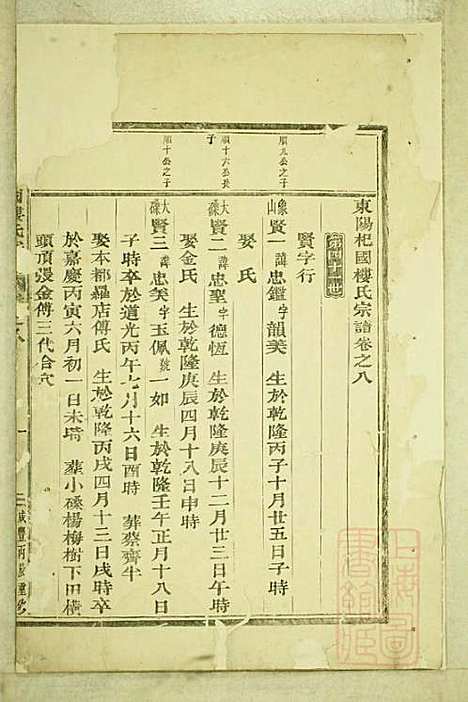 東陽杞國樓氏宗譜卷之八
賢字行
順九公之子
象山 賢一 諱忠鑑 字韻美 生於乾隆丙子十月廿五日子時
娶 氏
順十六公長子
大磉 賢二 諱忠聖 字德恆 生於乾隆庚辰十二月廿三日午時
娶金氏 生於乾隆庚辰四月十八日申時
順十公之子
大磉 賢三 諱忠美 字玉佩 號一如 生於乾隆壬午正月十八日
子時卒於道光丙午七月十六日酉時 葬蔡齋牛
娶本都羅店傅氏 生於乾隆丙戌四月十三日戌時卒
於嘉慶丙寅六月初一日未時 葬小磉楊梅樹下田橫
頭頂漫金傅三代合穴
咸豐丙辰重修
上海圖書館藏